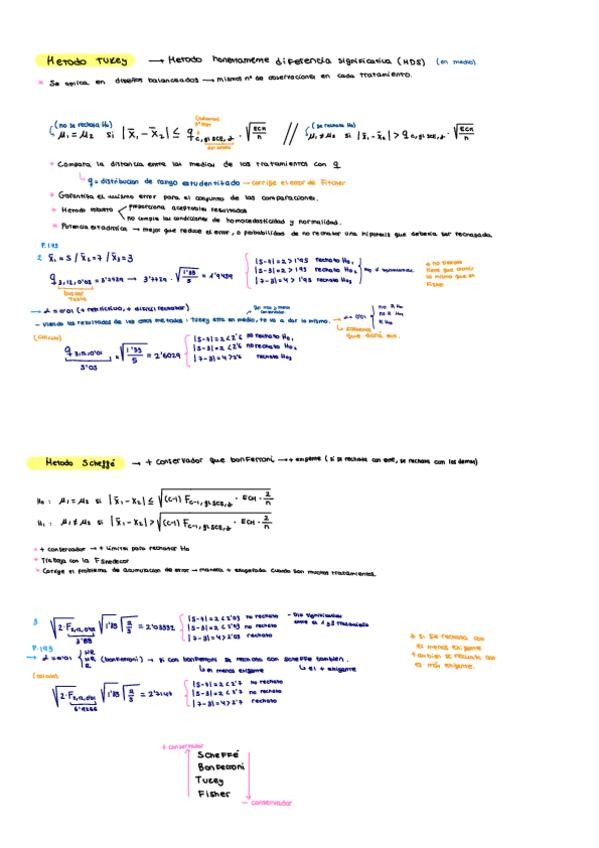 Metodo Tukey → Metodo honestamente diferencia significativa (HDS) (en medio)
* Se aplica en diseños balanceados → mismos nº de observaciones en cada tratamiento.
(no se rechaza H₀) (se rechaza H₀)
μ₁ = μ₂ si |x̄₁ - x̄₂| ≤ q c, gl SCE, α · √ECM/n // μ₁ ≠ μ₂ si |x̄₁ - x̄₂| > q c, gl SCE, α · √ECM/n
* Compara la distancia entre las medias de los tratamientos con q
↳ q = distribucion de rango estudentizado → corrige el error de Fisher
* Garantiza el mismo error para el conjunto de las comparaciones.
* Metodo robusto proporciona aceptables resultados
no cumple las condiciones de homocedasticidad y normalidad.
* Potencia estadistica → mejor que reduce el error, o probabilidades de no rechazar una hipotesis que deberia ser rechazada.
P.193
2. x̄₁ = 5 / x̄₂ = 7 / x̄₃ = 3
q 3,12,0'05 = 3'7729 → 3'7729 · √1'33/5 = 1'9459
buscar tabla
|5-7| = 2 > 1'95 rechazo H₀₁
|5-3| = 2 > 1'95 rechazo H₀₂
|7-3| = 4 > 1'95 rechazo H₀₃
* no tienen
que
lo mismo que en
Fisher
→ α = 0'01 (+ restrictivo, + dificil rechazar)
- Viendo los resultados de los otros metodos: Tukey esta en medio, te va a dar lo mismo. → α = 0'01
(calculo)
q 3,12,0'01 · √1'33/5 = 2'6029
5'03
|5-7| = 2 < 2'6 no rechazo H₀₁
|5-3| = 2 < 2'6 no rechazo H₀₂
|7-3| = 4 > 2'6 rechazo H₀₃
Metodo Scheffé → + conservador que bonferroni → + exigente (si se rechaza con este, se rechaza con los demas)
H₀: μ₁ = μ₂ si |x̄₁ - x̄₂| ≤ √(c-1) F c-1, gl SCE, α · ECM · 2/n
H₁: μ₁ ≠ μ₂ si |x̄₁ - x̄₂| > √(c-1) F c-1, gl SCE, α · ECM · 2/n
* + conservador → + limites para rechazar H₀
* Trabaja con la F Snedecor
* Corrige el problema de acumulacion de error → manera + exagerada cuando son muchos tratamientos.
3 √2·F 2,12,0'05 √1'33 √2/5 = 2'03332
3'88
|5-7| = 2 < 2'03 no rechazo
|5-3| = 2 < 2'03 no rechazo
|7-3| = 4 > 2'03 rechazo
- Dif significativas
entre el 2 y 3 tratamiento
P.193
→ α = 0'01 NR NR R (bonferroni) → si con bonferroni se rechaza con scheffe tambien.
↳ en menos exigente ↳ el + exigente
(calculo)
√2·F 2,12,0'01 √1'33 √2/5 = 2'7147
6'9266
|5-7| = 2 < 2'7 no rechazo
|5-3| = 2 < 2'7 no rechazo
|7-3| = 4 > 2'7 rechazo
* si se rechaza con
el menos exigente
tambien se rechaza con
el más exigente.
+ conservador
Scheffé
Bonferroni
Tukey
Fisher
- conservador